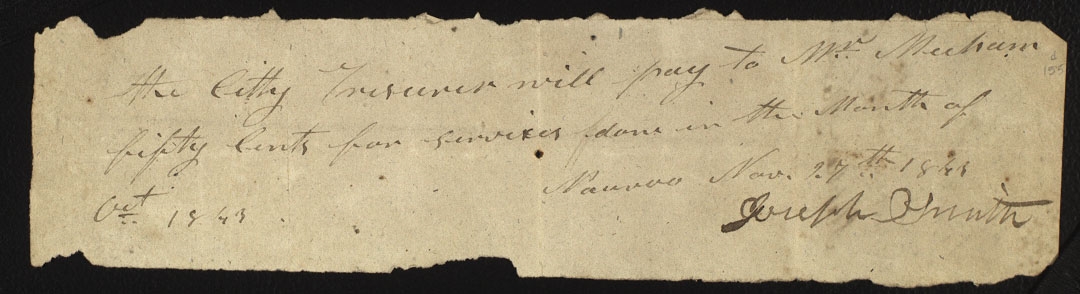 the Citty Tresurer will pay to Mr. Mecham
fifty Cents for servises done in the Month of
Oct 1843
Nauvoo Nov. 27th 1843
Joseph Smith
155